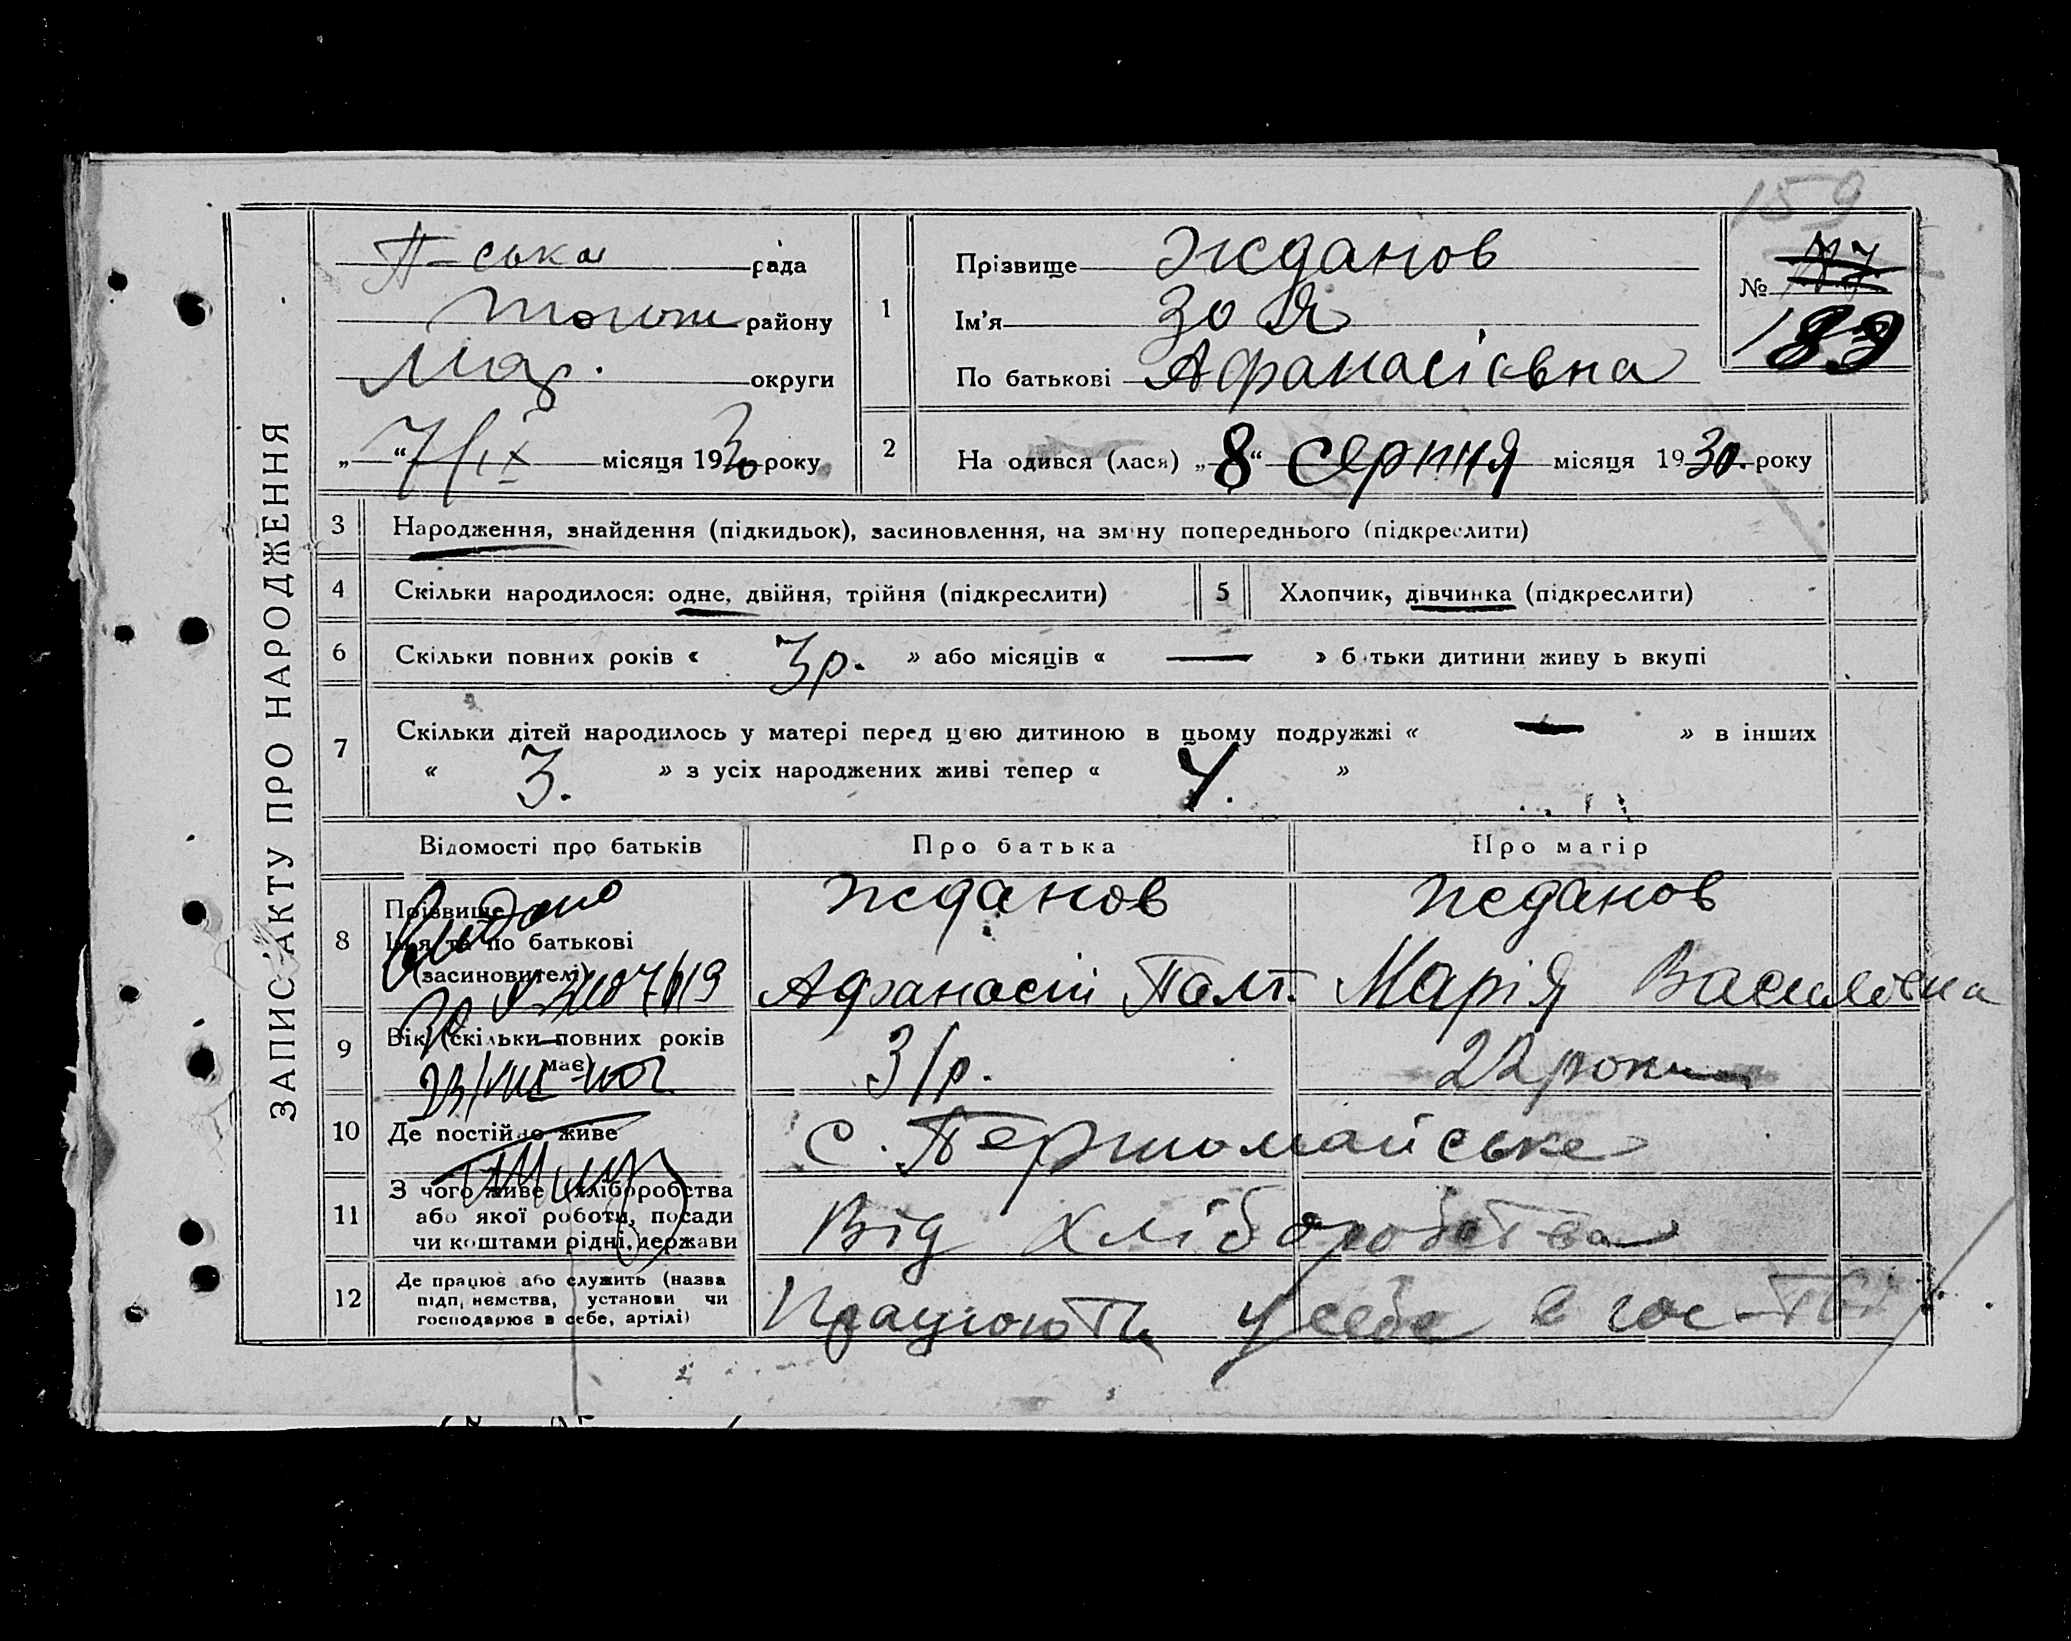 159
ЗАПИС АКТУ ПРО НАРОДЖЕННЯ
П-ська рада
району
Мар. округи
„ 7/ІХ “ місяця 1930 року
1
Прізвище Жданов
Ім'я Зоя
По батькові Афанасієвна
№ 77
189
2 На одився (лася) „8“ серпня місяця 1930. року
3 Народження, знайдення (підкидьок), засиновлення, на зміну попереднього (підкреслити)
4 Скільки народилося: одне, двійня, трійня (підкреслити) 5 Хлопчик, дівчинка (підкреслити)
6 Скільки повних років « 3 р. » або місяців « — » б тьки дитини живу ь вкупі
7 Скільки дітей народилось у матері перед цією дитиною в цьому подружжі « — » в інших
« 3. » з усіх народжених живі тепер « 4. »
Відомості про батьків Про батька Про матір
8 Прізвище Жданов Жданов
Ім'я та по батькові
(засиновителі) Афанасій Марія Василівна
Видано
9 Вік (скільки повних років має) 31р. 22 роки
10 Де постійно живе с. Першомайське
11 З чого живе хліборобства
або якої роботи, посади
чи коштами рідні, держави Від хліборобства
12 Де працює або служить (назва
підп, иємства, установи чи
господарює в себе, артілі) Працюють у себе в гос-тві